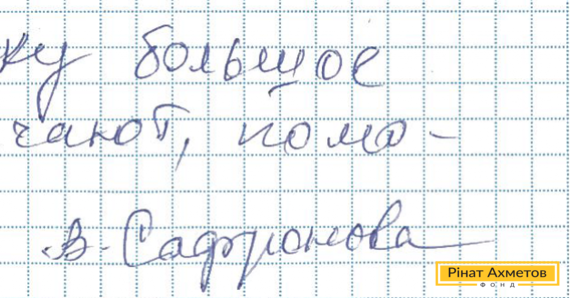 ку большое
чают, помо-
В. Сафронова
Рінат Ахметов
ФОНД